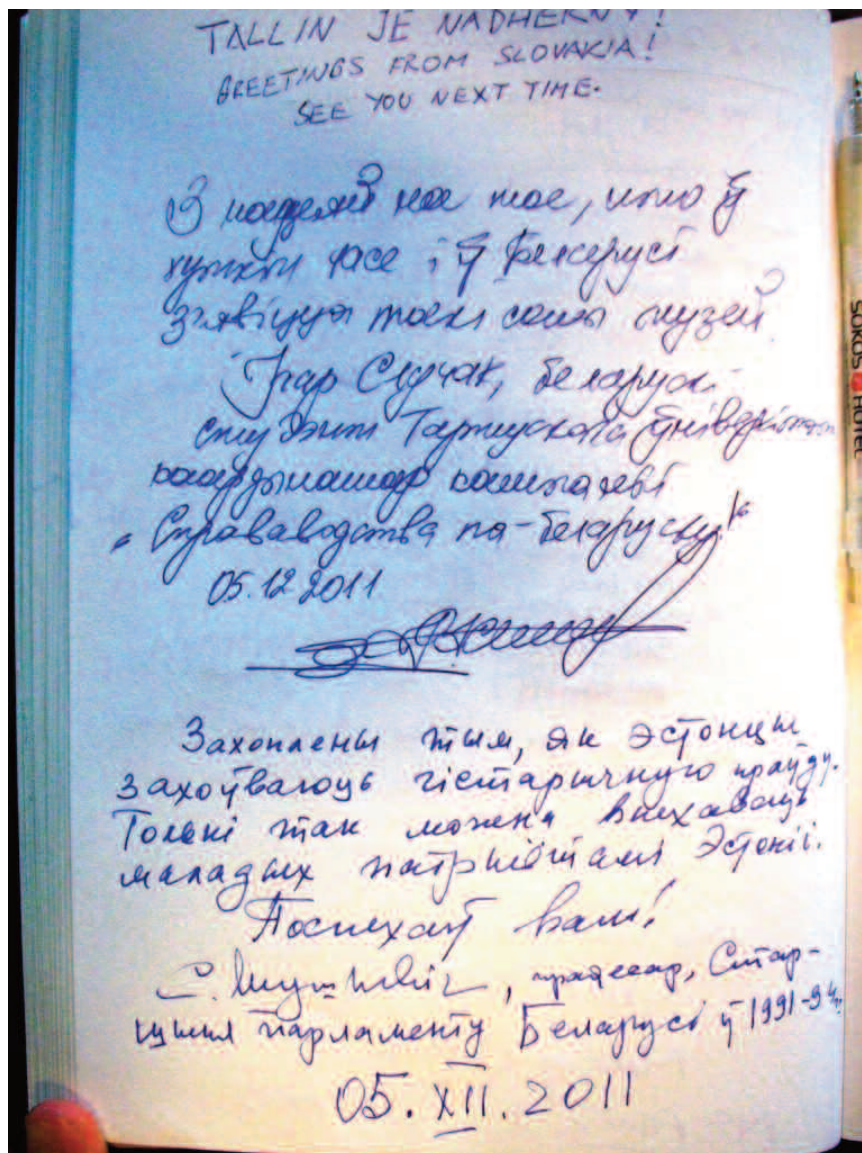 TALLIN JE NADHERNY!
GREETINGS FROM SLOVAKIA!
SEE YOU NEXT TIME.
З надзеяй на тое, што ў
хуткім часе і ў Беларусі
з'явіцца такі самы музей
Ігар Случак, беларускі
студэнт Тартускага ўніверсітэта
каардынатар кампаніі
"Справаводства па-беларуску!"
05.12.2011
Захоплены тым, як эстонцы
захоўваюць гістарычную праўду.
Толькі так можна выхаваць
маладых патрыётамі Эстоніі.
Поспехаў вам!
С. Шушкевіч, прафесар, Стар-
шыня парламенту Беларусі ў 1991-94
05.XII.2011
SOKOS HOTEL